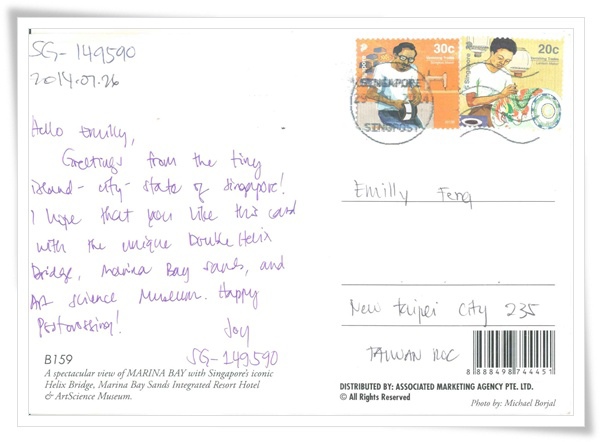 SG-149590
2014.07.26
Hello Emilly,
Greetings from the tiny
island-city-state of Singapore!
I hope that you like this card
with the unique Double Helix
Bridge, Marina Bay Sands, and
Art Science Museum. Happy
Postcrossing!
Joy
SG-149590
B159
A spectacular view of MARINA BAY with Singapore's iconic
Helix Bridge, Marina Bay Sands Integrated Resort Hotel
& ArtScience Museum.
30c
20c
Singapore
SINGAPORE
SINGPOST
Emilly Feng
New Taipei City 235
TAIWAN ROC
8 888498 744451
DISTRIBUTED BY: ASSOCIATED MARKETING AGENCY PTE. LTD.
© All Rights Reserved
Photo by: Michael Borjal